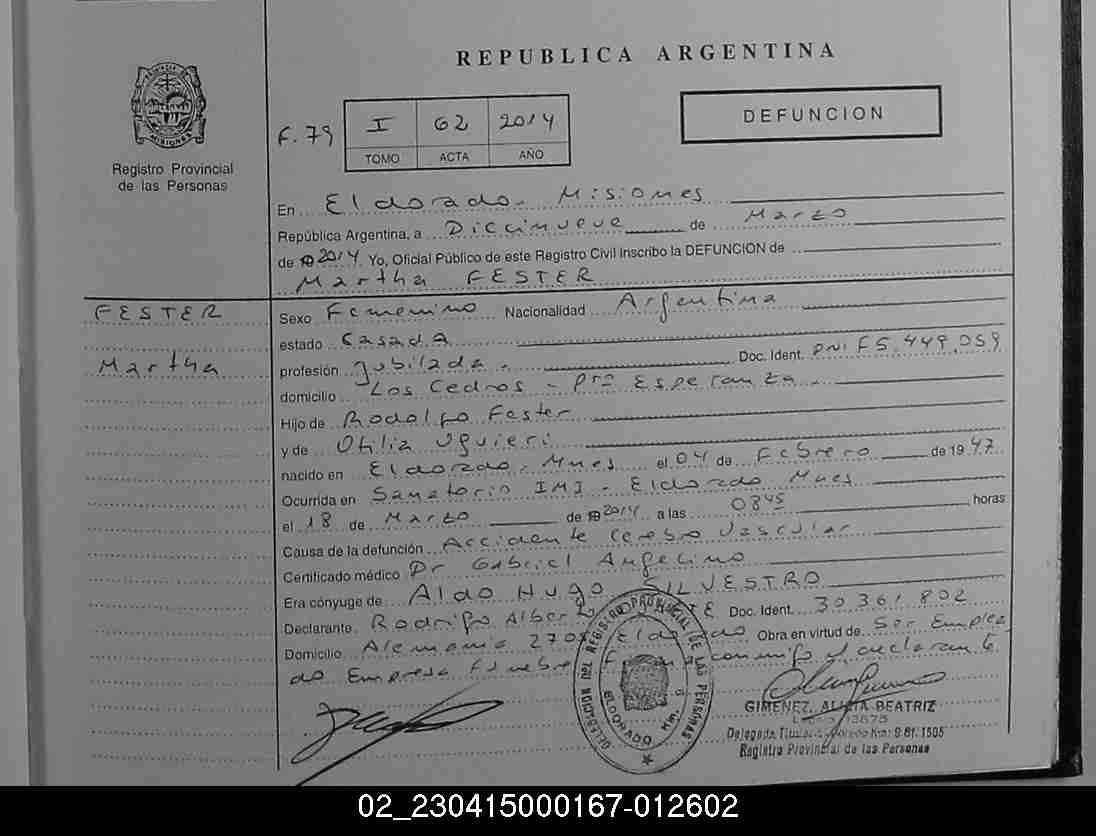 REPUBLICA ARGENTINA
Registro Provincial
de las Personas
F. 79
I 62 2014
TOMO ACTA AÑO
DEFUNCION
En Eldorado - Misiones
República Argentina, a Diecinueve de Marzo
de 2014 Yo, Oficial Público de este Registro Civil inscribo la DEFUNCION de
Martha FESTER
FESTER
Martha
Sexo Femenino Nacionalidad Argentina
estado Casada
profesión Jubilada - Doc. Ident. DNI F5.449.059
domicilio Los Cedros - Pto Esperanza -
Hijo de Rodolfo Fester
y de Otilia Uguieri
nacido en Eldorado - Mnes el 04 de Febrero de 1947
Ocurrida en Sanatorio IMI - Eldorado Mnes
el 18 de Marzo de 2014 a las 0845 horas
Causa de la defunción Accidente Cerebro Vascular
Certificado médico Dr Gabriel Angelino
Era cónyuge de Aldo Hugo SILVESTRO
Declarante Rodrigo Doc. Ident. 30361802
Domicilio Alemania Eldorado Obra en virtud de Ser Emplea
do Empresa Fúnebre conmigo el declarante
DELEGACION DEL REGISTRO PROVINCIAL DE LAS PERSONAS
ELDORADO Km. 9
GIMENEZ, ALICIA BEATRIZ
Registro Provincial de las Personas
02_230415000167-012602